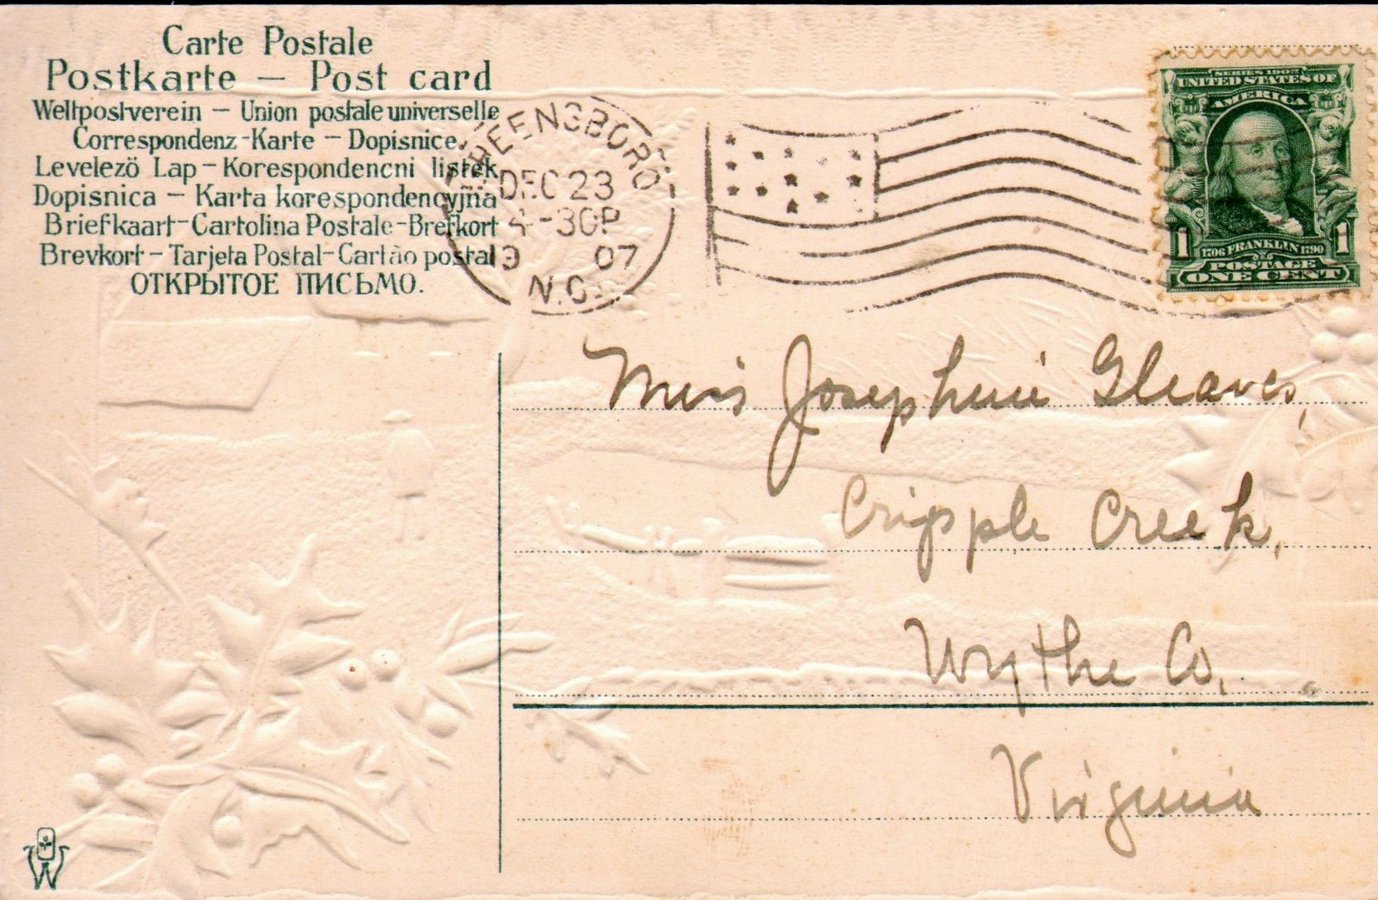 Carte Postale
Postkarte — Post card
Weltpostverein — Union postale universelle
Correspondenz-Karte — Dopisnice.
Levelezö Lap — Korespondencni listek
Dopisnica — Karta korespondencyjna
Briefkaart-Cartolina Postale-Brefkort
Brevkort-Tarjeta Postal-Cartão postal
ОТКРЫТОЕ ПИСЬМО.
GREENSBORO
DEC 23
4-30P
19 07
N.C.
SERIES 1902
UNITED STATES OF
AMERICA
1 1
1706 FRANKLIN 1790
POSTAGE
ONE CENT
Miss Josephine Gleaves,
Cripple Creek,
Wythe Co.
Virginia
W